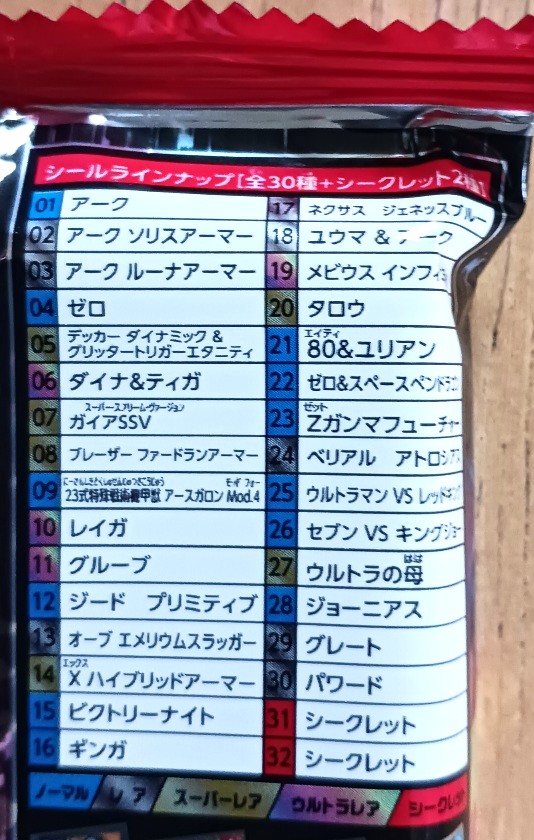 シールラインナップ[全30種+シークレット2種]
01 アーク
02 アーク ソリスアーマー
03 アーク ルーナアーマー
04 ゼロ
05 デッカー ダイナミック &
グリッタートリガーエタニティ
06 ダイナ&ティガ
スープリーム・ヴァージョン
07 ガイアSSV
08 ブレーザー ファードランアーマー
にーさんしきとくしゅせんじゅつきこうじゅう モッド フォー
09 23式特殊戦術機甲獣 アースガロン Mod.4
10 レイガ
11 グルーブ
12 ジード プリミティブ
13 オーブ エメリウムスラッガー
エックス
14 X ハイブリッドアーマー
15 ビクトリーナイト
16 ギンガ
17 ネクサス ジェネッスブルー
18 ユウマ & アーク
19 メビウス インフィ
20 タロウ
エイティ
21 80&ユリアン
22 ゼロ&スペースペンドラゴ
ゼット
23 Zガンマフューチャー
24 ベリアル アトロシアス
25 ウルトラマン VS レッドキング
26 セブン VS キングジョー
はは
27 ウルトラの母
28 ジョーニアス
29 グレート
30 パワード
31 シークレット
32 シークレット
ノーマル レア スーパーレア ウルトラレア シークレット